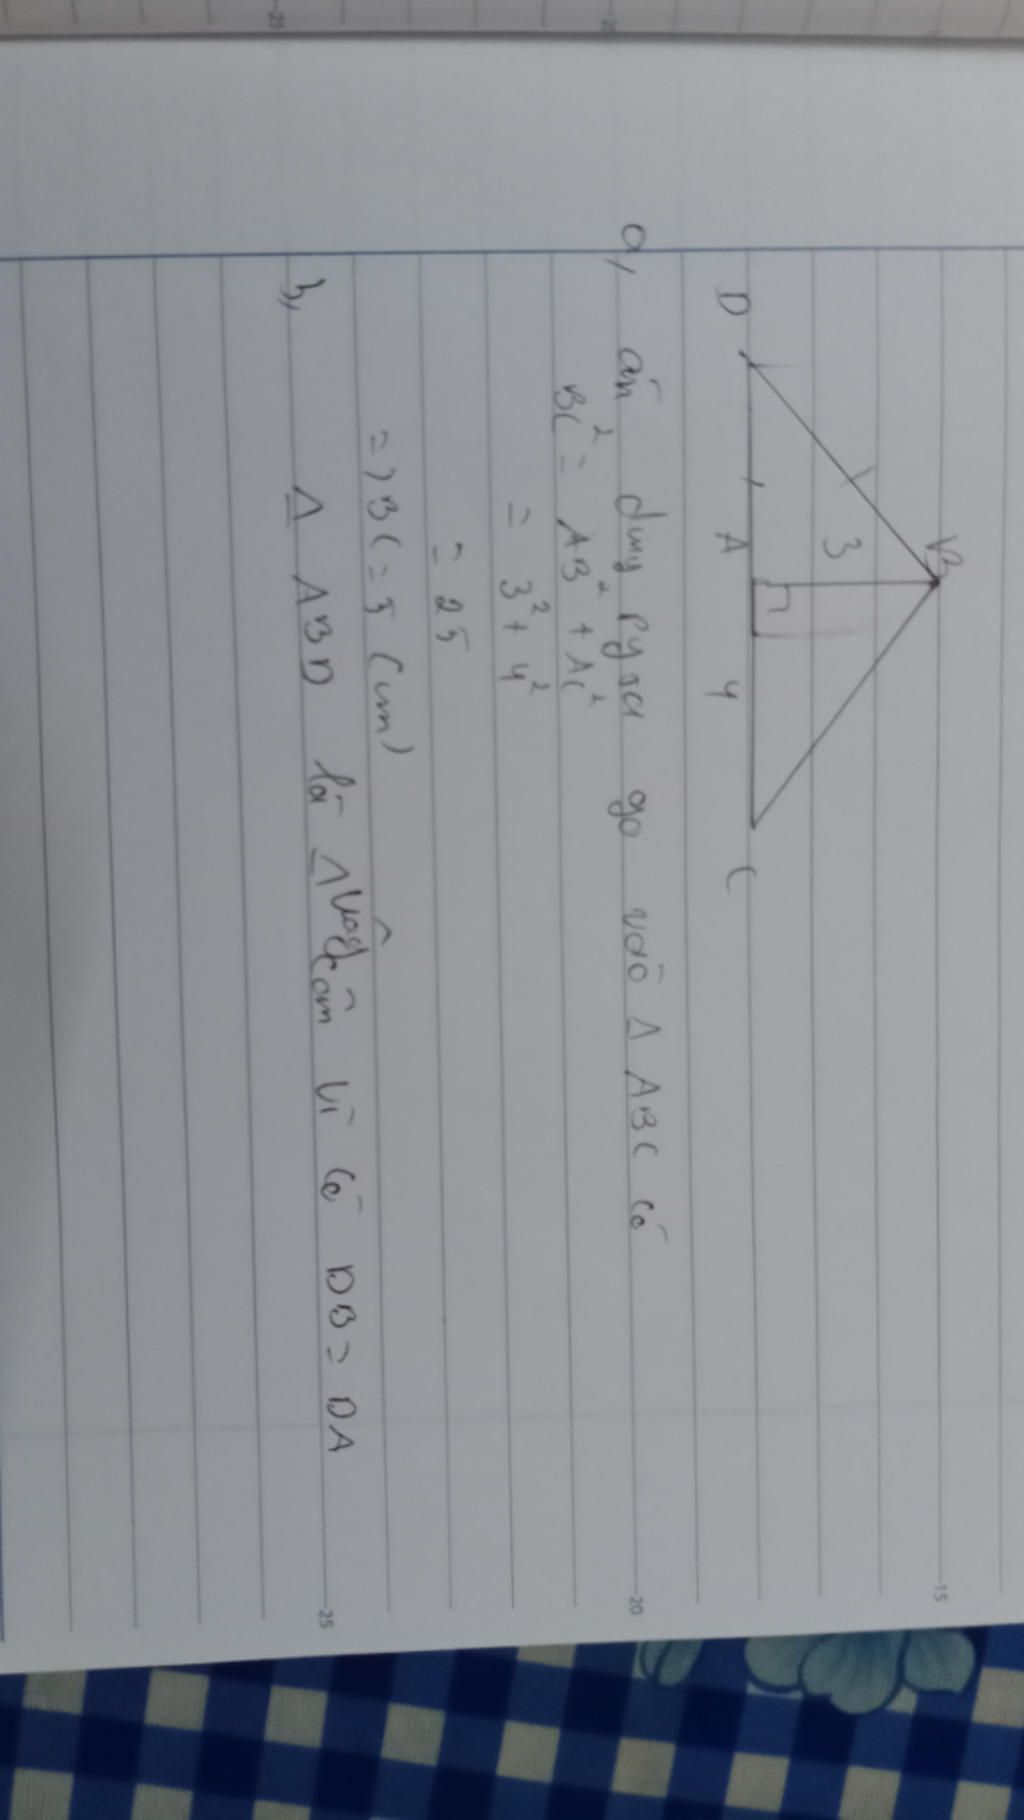 B
3
D A 4 C
a, áp dụng Pytago vào Δ ABC có
BC² = AB² + AC²
= 3² + 4²
= 25
=) BC = 5 (cm)
b, Δ ABD là Δ vuông cân vì có DB = DA
15
20
25
20
25